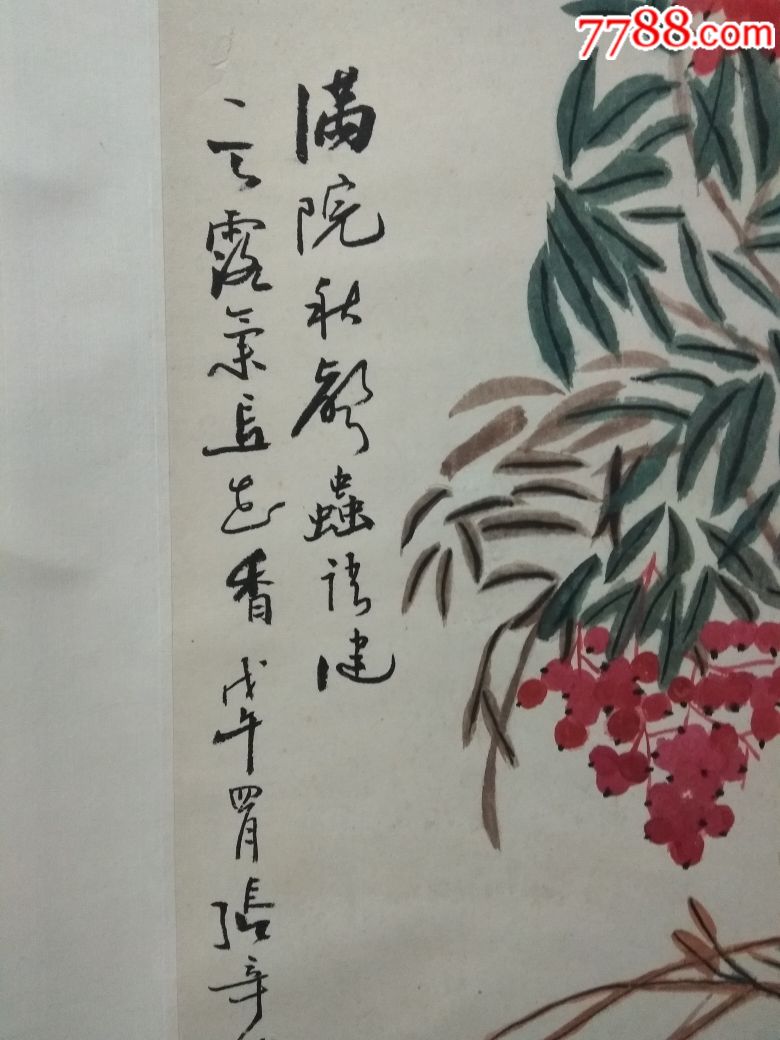 7788.com
满院秋声蟲語健
一天露氣豆花香 戊午四月張辛